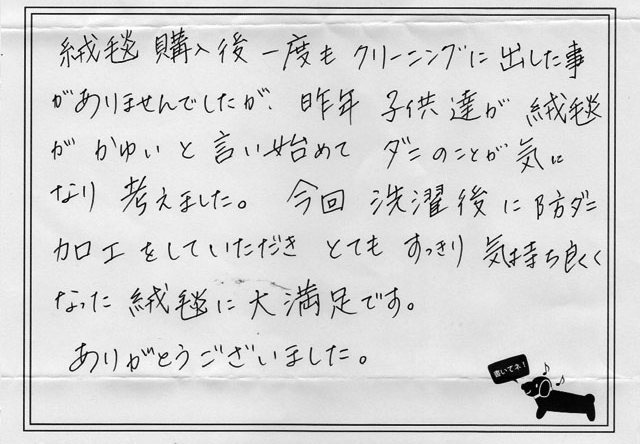 絨毯 購入後 一度も クリーニングに 出した事
がありませんでしたが、昨年 子供達が 絨毯
が かゆいと 言い始めて ダニのことが 気に
なり 考えました。 今回 洗濯後に 防ダニ
加工をしていただき とても すっきり 気持ち良く
なった 絨毯に 大満足です。
ありがとうございました。
書いてネ!